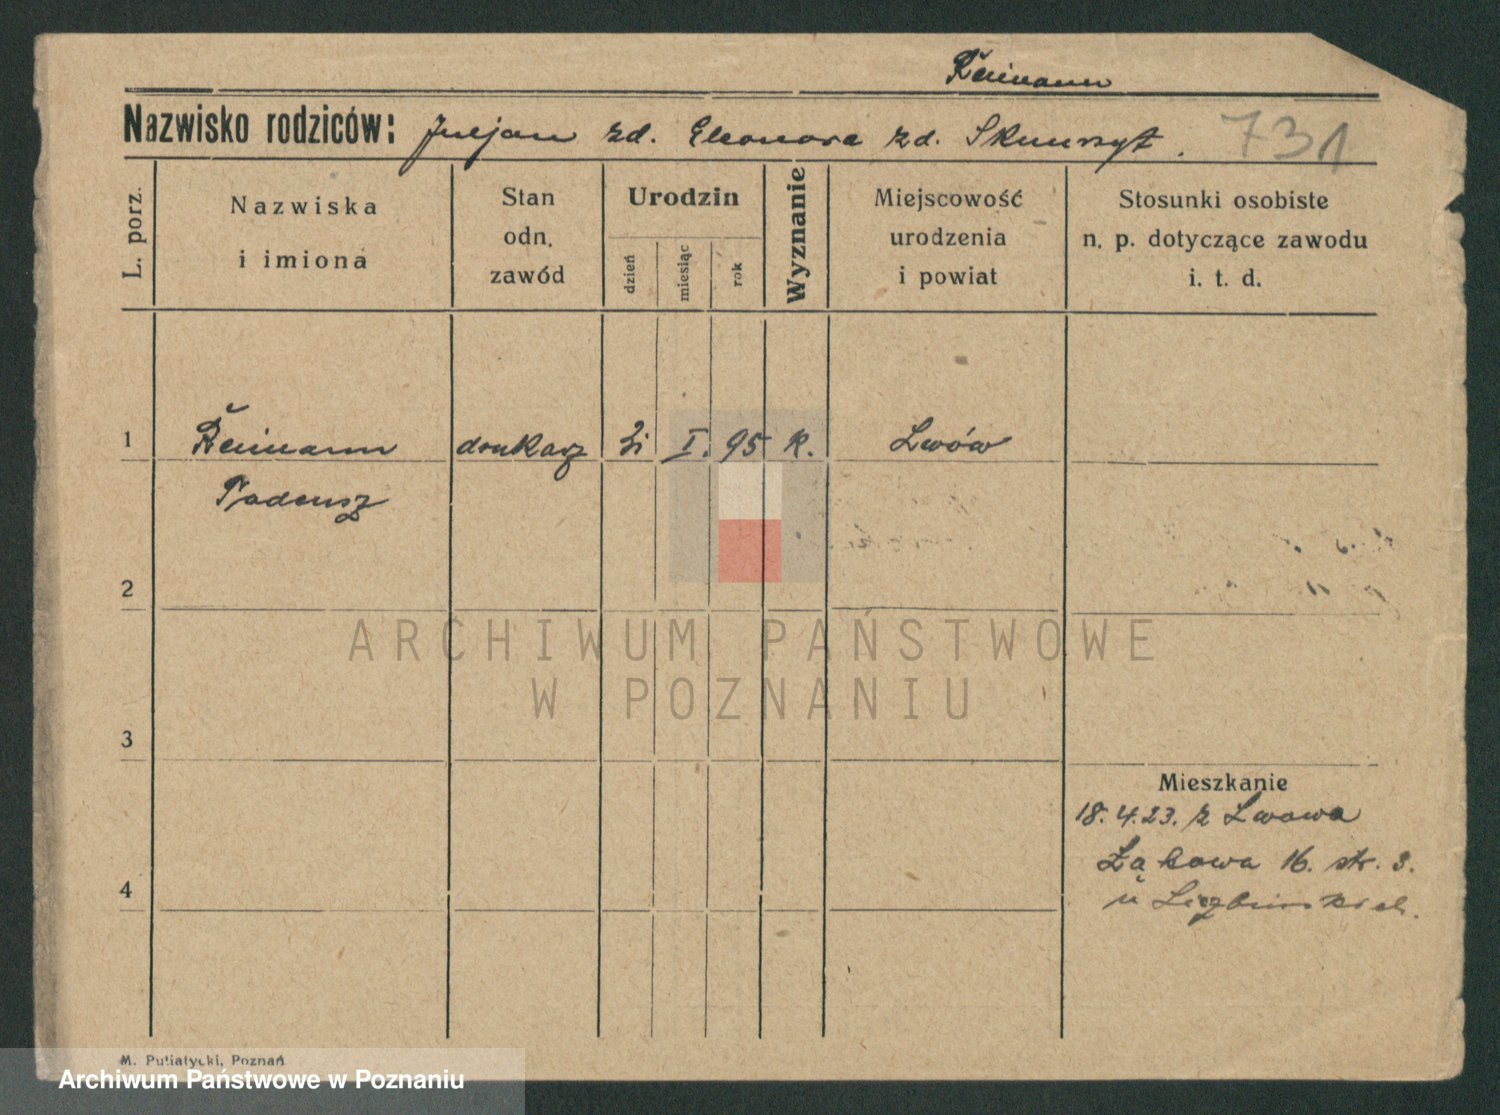 Reimann
Nazwisko rodziców: Juljan zd. Eleonora zd. Skurczyt.
731
L. porz.
Nazwiska
i imiona
Stan
odn.
zawód
Urodzin
dzień
miesiąc
rok
Wyznanie
Miejscowość
urodzenia
i powiat
Stosunki osobiste
n. p. dotyczące zawodu
i. t. d.
1
Reimann drukarz I. 95 k. Lwów
Tadeusz
2
ARCHIWUM PAŃSTWOWE
W POZNANIU
3
Mieszkanie
18.4.23. z Lwowa
Łąkowa 16. str. 3.
4
u
M. Putiatycki, Poznań
Archiwum Państwowe w Poznaniu